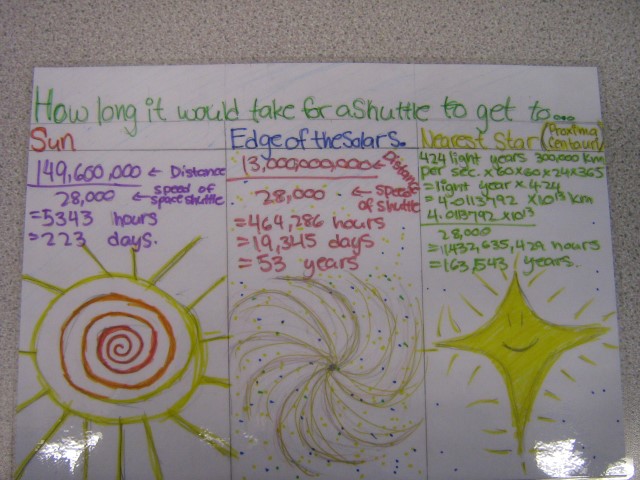 How long it would take for a shuttle to get to...
Sun
149,600,000 ← Distance
28,000 ← speed of space shuttle
=5343 hours
=223 days.
Edge of the Solar S.
13,000,000,000 ← Distance
28,000 ← speed of shuttle
=464,286 hours
=19,345 days
=53 years
Nearest Star (Proxima Centauri)
424 light years 300,000 km
per sec. x60x60x24x365
=light year x 4.24
=4.0113792 x10¹³ km
4.0113792 x10¹³
28,000
=1,432,635,429 hours
=163,543 years.